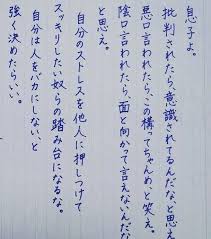 息子よ。
批判されたら、意識されてるんだな、と思え。
悪口言われたら、この構ってちゃんめと笑え。
陰口言われたら、面と向かって言えないんだな
と思え。
自分のストレスを他人に押しつけて
スッキリしたい奴らの踏み台になるな。
自分は人をバカにしない、と
強く決めたらいい。